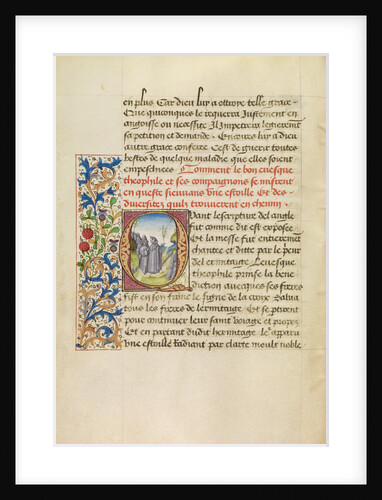 en plus Car dieu luy a ottroye telle grace
Que quiconques le requerra Justement en
angoisse ou necessite Il Impetrera legierem̄t
sa petition et demande. Encores luy a dieu
aultre grace conferee Cest de guerir toutes
bestes de quelque maladie que elles soient
empeschiees Comment le bon euesque
theophile et ses compaignons se mirent
en queste sieuuans vne estoille Et des
diuersitez quilz trouuerent en chemin.
Quant lescripture del angle
fut comme dit est exposee
Et la messe fut entieremēt
chantee et ditte par le
del ermitaige Leuesque
theophile prinse la bene
diction auecques ses freres
fist en son front le signe de la croix Salua
tous les freres de lermitaige Et se partirent
pour continuer leur saint voiage et propos
Et en partant dudit hermitage leur apparu
vne estoille Radiant par clarte moult noble